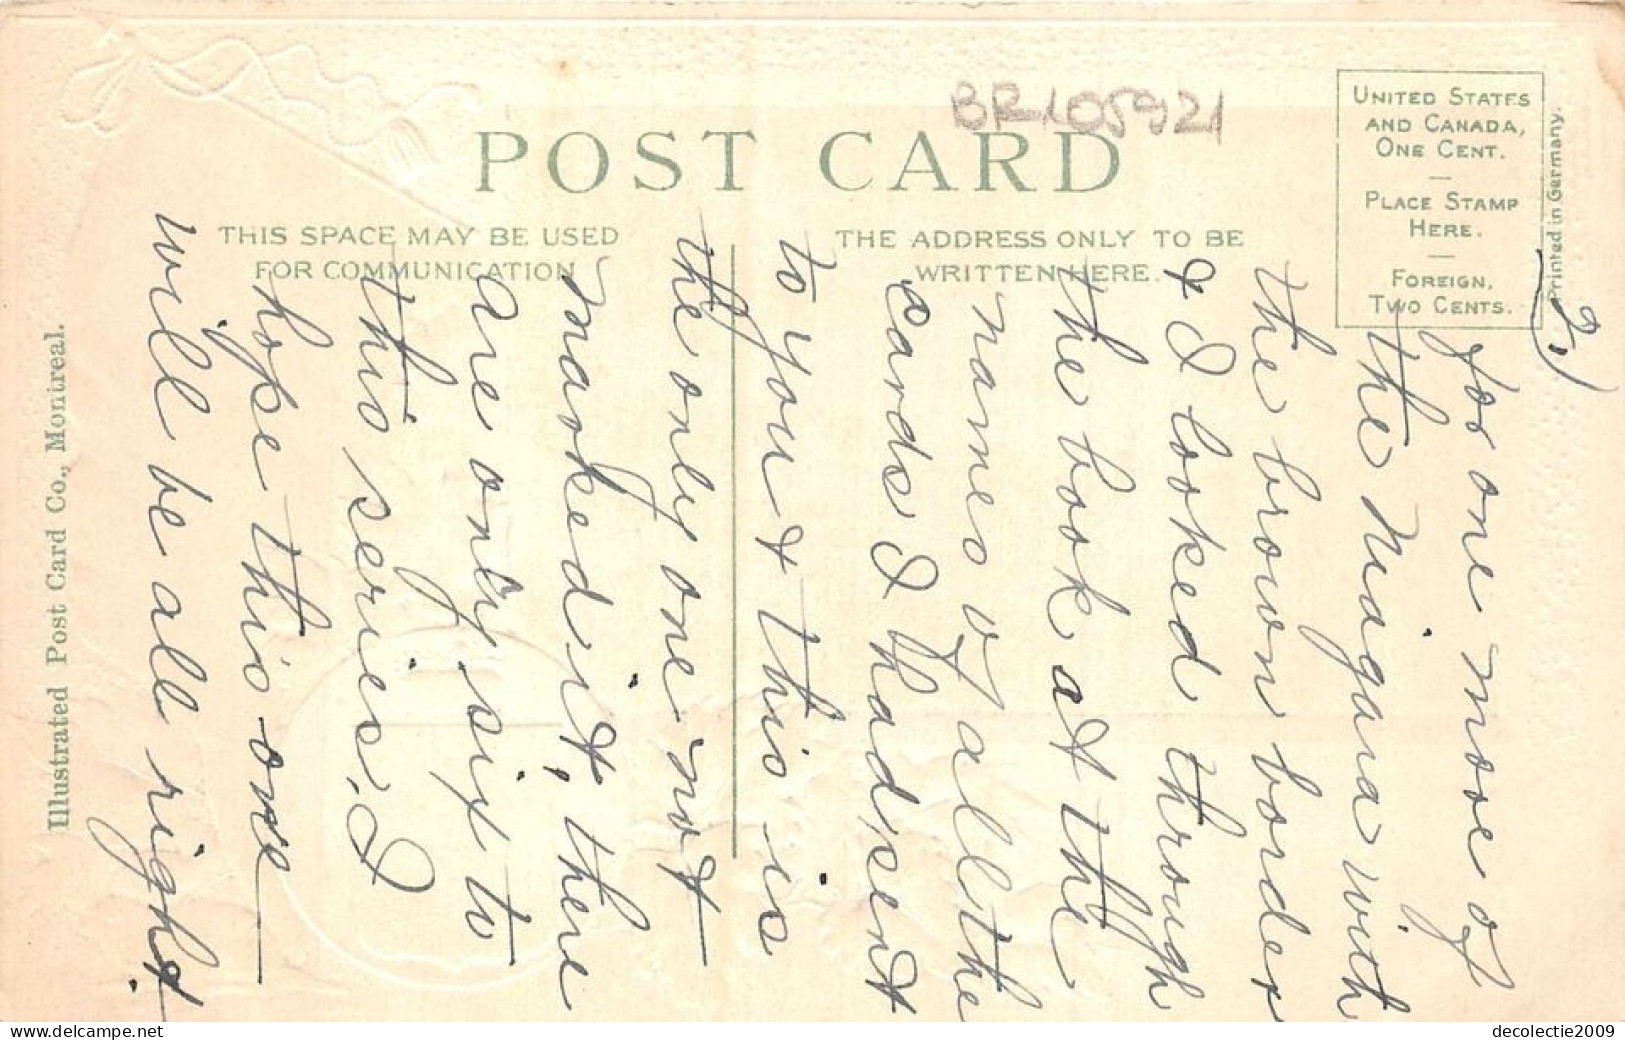 BR105921
POST CARD
THIS SPACE MAY BE USED
FOR COMMUNICATION
THE ADDRESS ONLY TO BE
WRITTEN HERE.
UNITED STATES
AND CANADA,
ONE CENT.
PLACE STAMP
HERE.
FOREIGN,
TWO CENTS.
Printed in Germany.
Illustrated Post Card Co., Montreal.
2.)
for one more of
the Niagara with
the brown border
& I looked through
the book at the
names of all the
cards I had sent
to you & this is
the only one not
marked it, there
are only six to
this series. I
hope this one
will be all right.
decolectie2009
www.delcampe.net